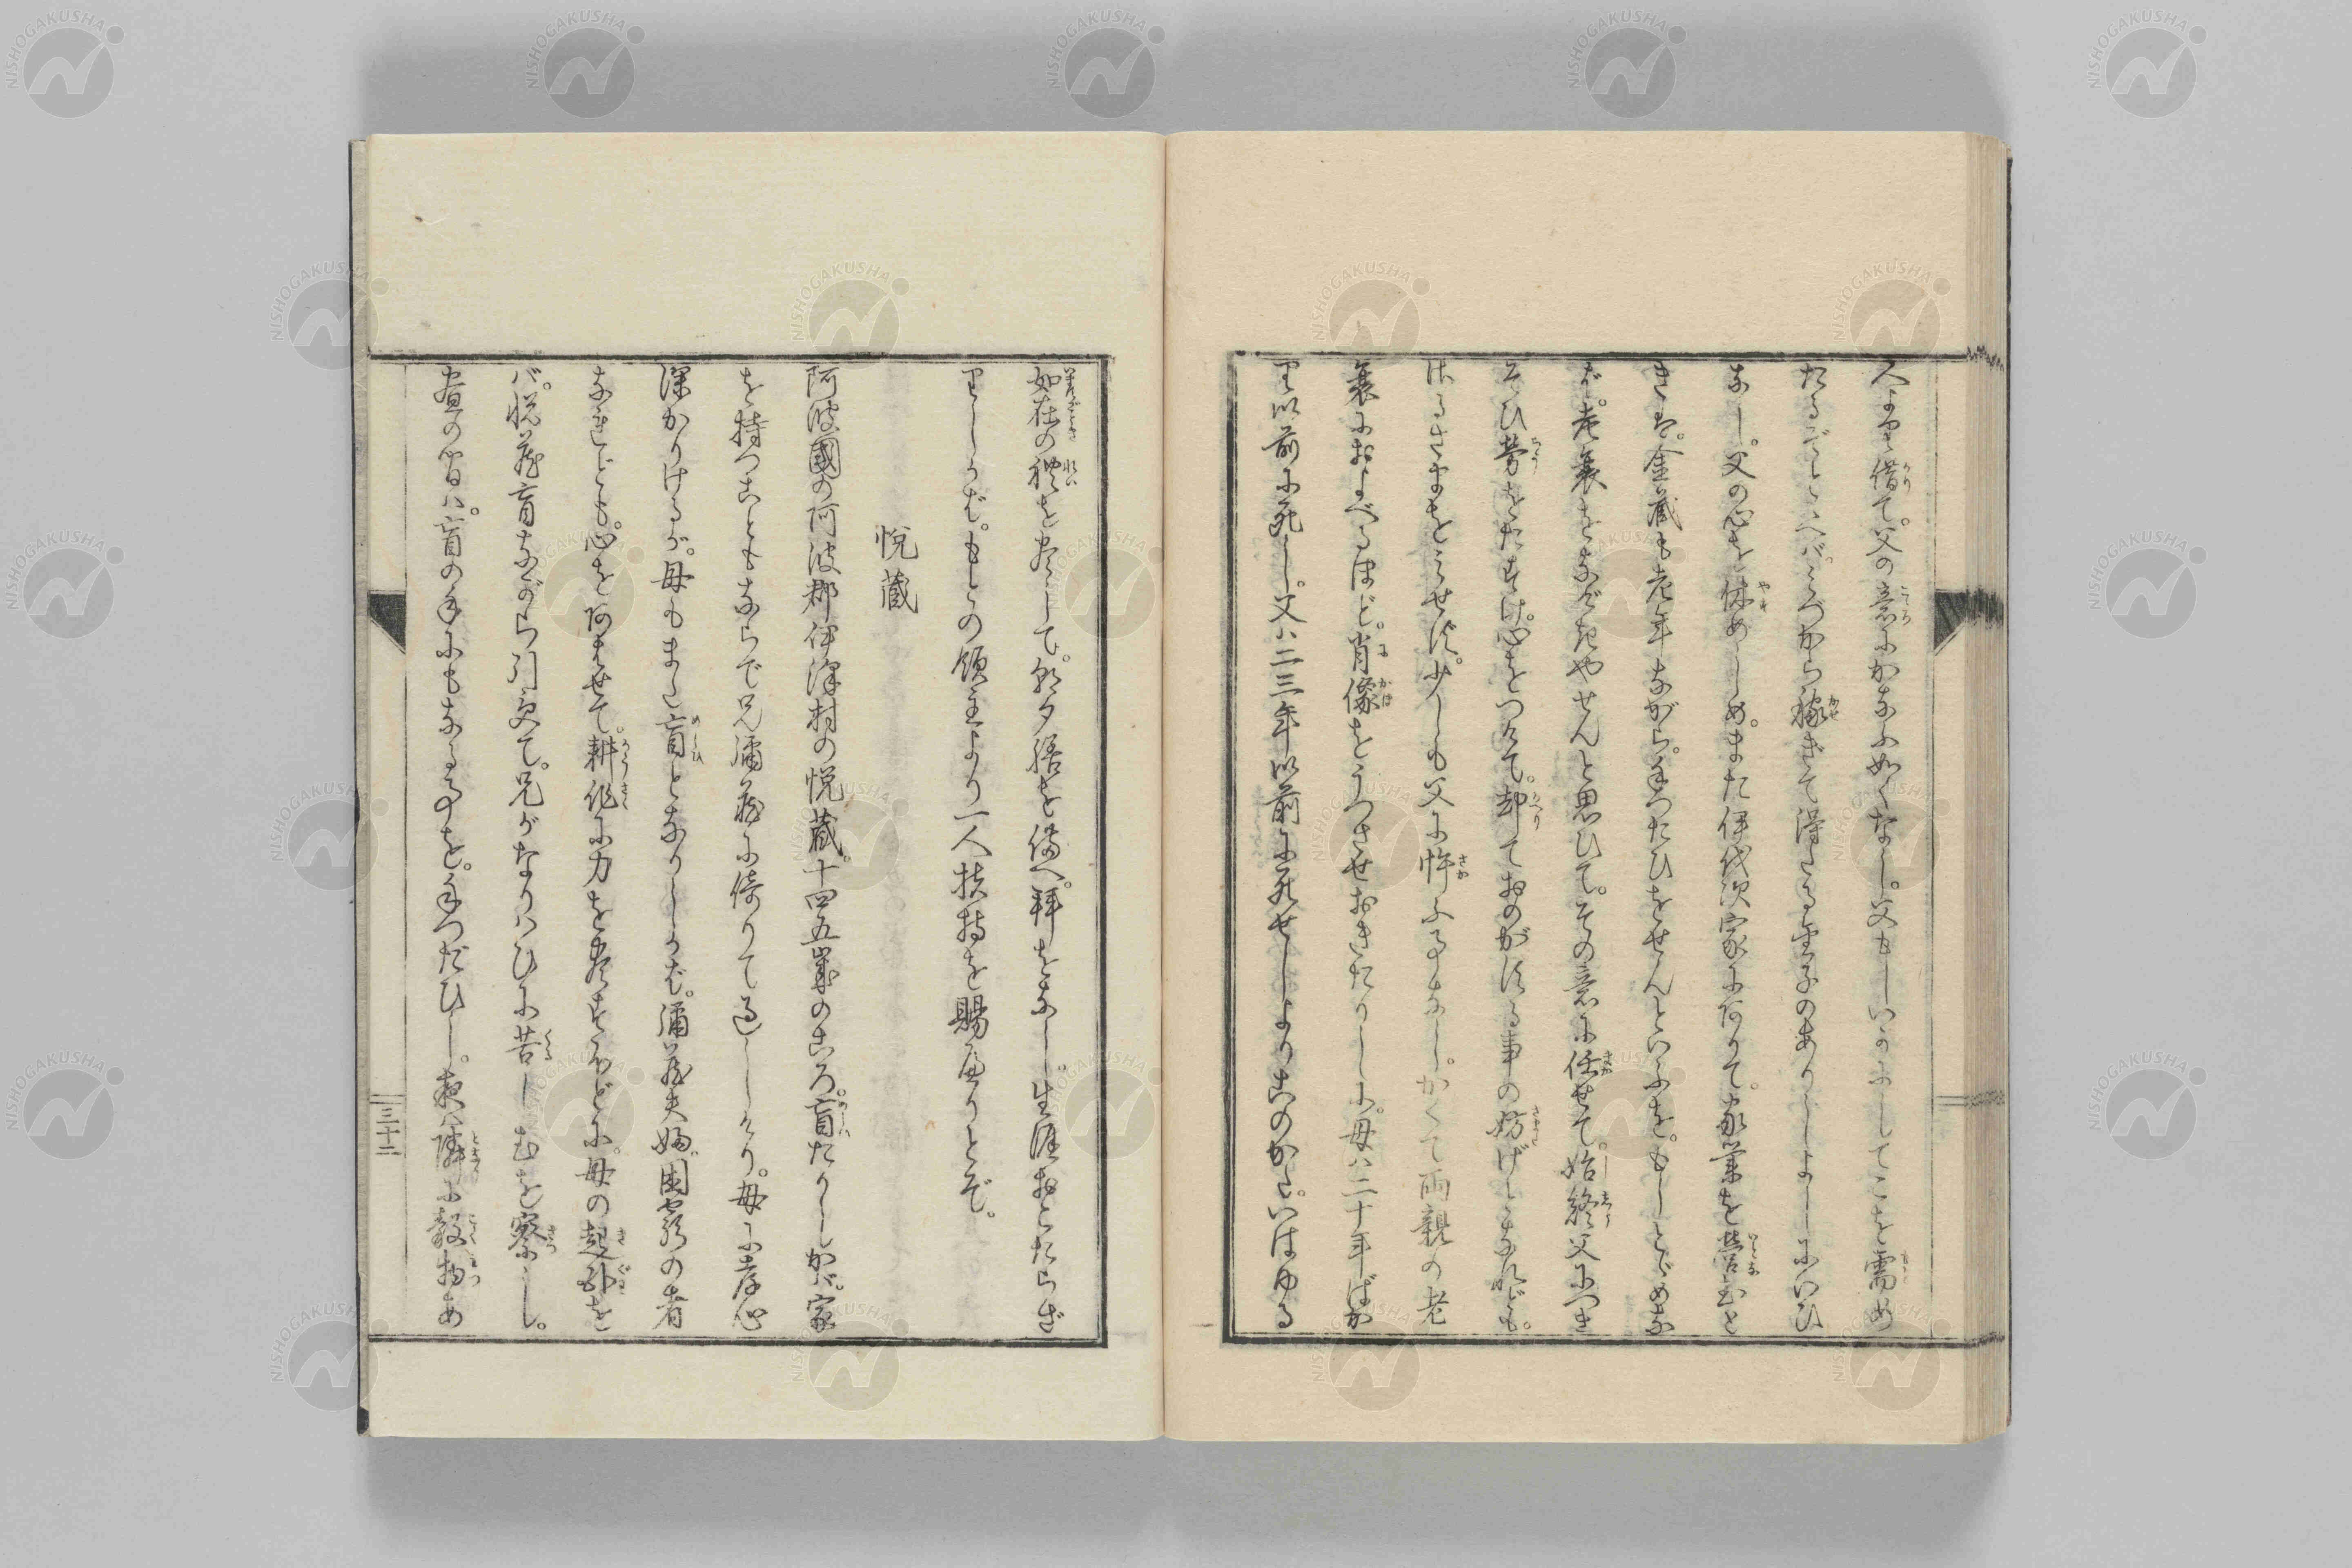 人より借て。父の意にかなふ如くなし。父もしいかにしてこを需め
たるぞとゝへバ。みづから稼ぎて得たる金子のありしよしにいひ
なし。父の心を休めしめ。また伊代次家に在りて。家業を営むと
きは。金蔵も老年ながら。手つたひをせんといふを。もしとゞめな
ば。老衰をなげきやせんと思ひて。その意に任せて。始終父につき
そひ労をたすけ。心をつけて。却ておのがする事の妨げしらなれども。
けるさまをみせず。少しも父に忤ふ事なし。かくて両親の老
衰におよべるほど。肖像をうつさせおきたりしに。母ハ二十年ばか
り以前に死し。父ハ二三年以前に死せしよりこのかた。いはゆる
如在の禮を尽して。朝夕膳を備へ。拜をなし。生涯おこたらざ
りしかば。もとの領主より一人扶持を賜ハりとぞ。
悦蔵
阿波國の阿波郡伊澤村の悦蔵。十四五歳のころ。盲たりしかバ。家
を持つこともならで兄彌蔵に倚りて過しけり。母に孝心
深かりけるが。母もまた盲となりしかば。彌蔵夫婦困窮の者
なれども。心をあはせて。耕作に力を尽すほどに。母の起臥を
バ。悦蔵盲ながら引受て。兄がなりハひに苦しむを察し。
昼の間ハ。盲の手にもなる事を。手つだひし。夜ハ隣に穀物あ
三十二
NISHOGAKUSHA